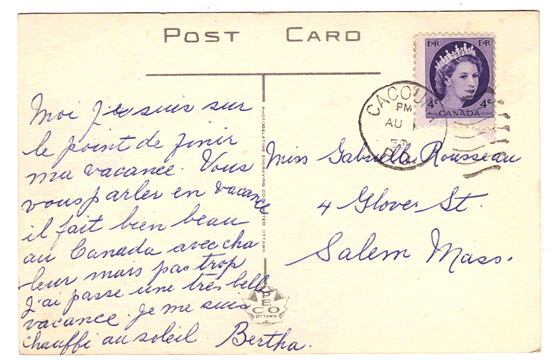 POST CARD
E R E R
4c 4c
CANADA
CACOU
PM
AU
Moi je suis sur
le point de finir
ma vacance. Vous
vous parler en vacance
il fait bien beau
au Canada avec cha
leur mais pas trop
J'ai passe une très belle
vacance. Je me suis
chauffé au soleil. Bertha.
Miss Gabrielle Rousseau
4 Glover St.
Salem Mass.
PECO
OTTAWA